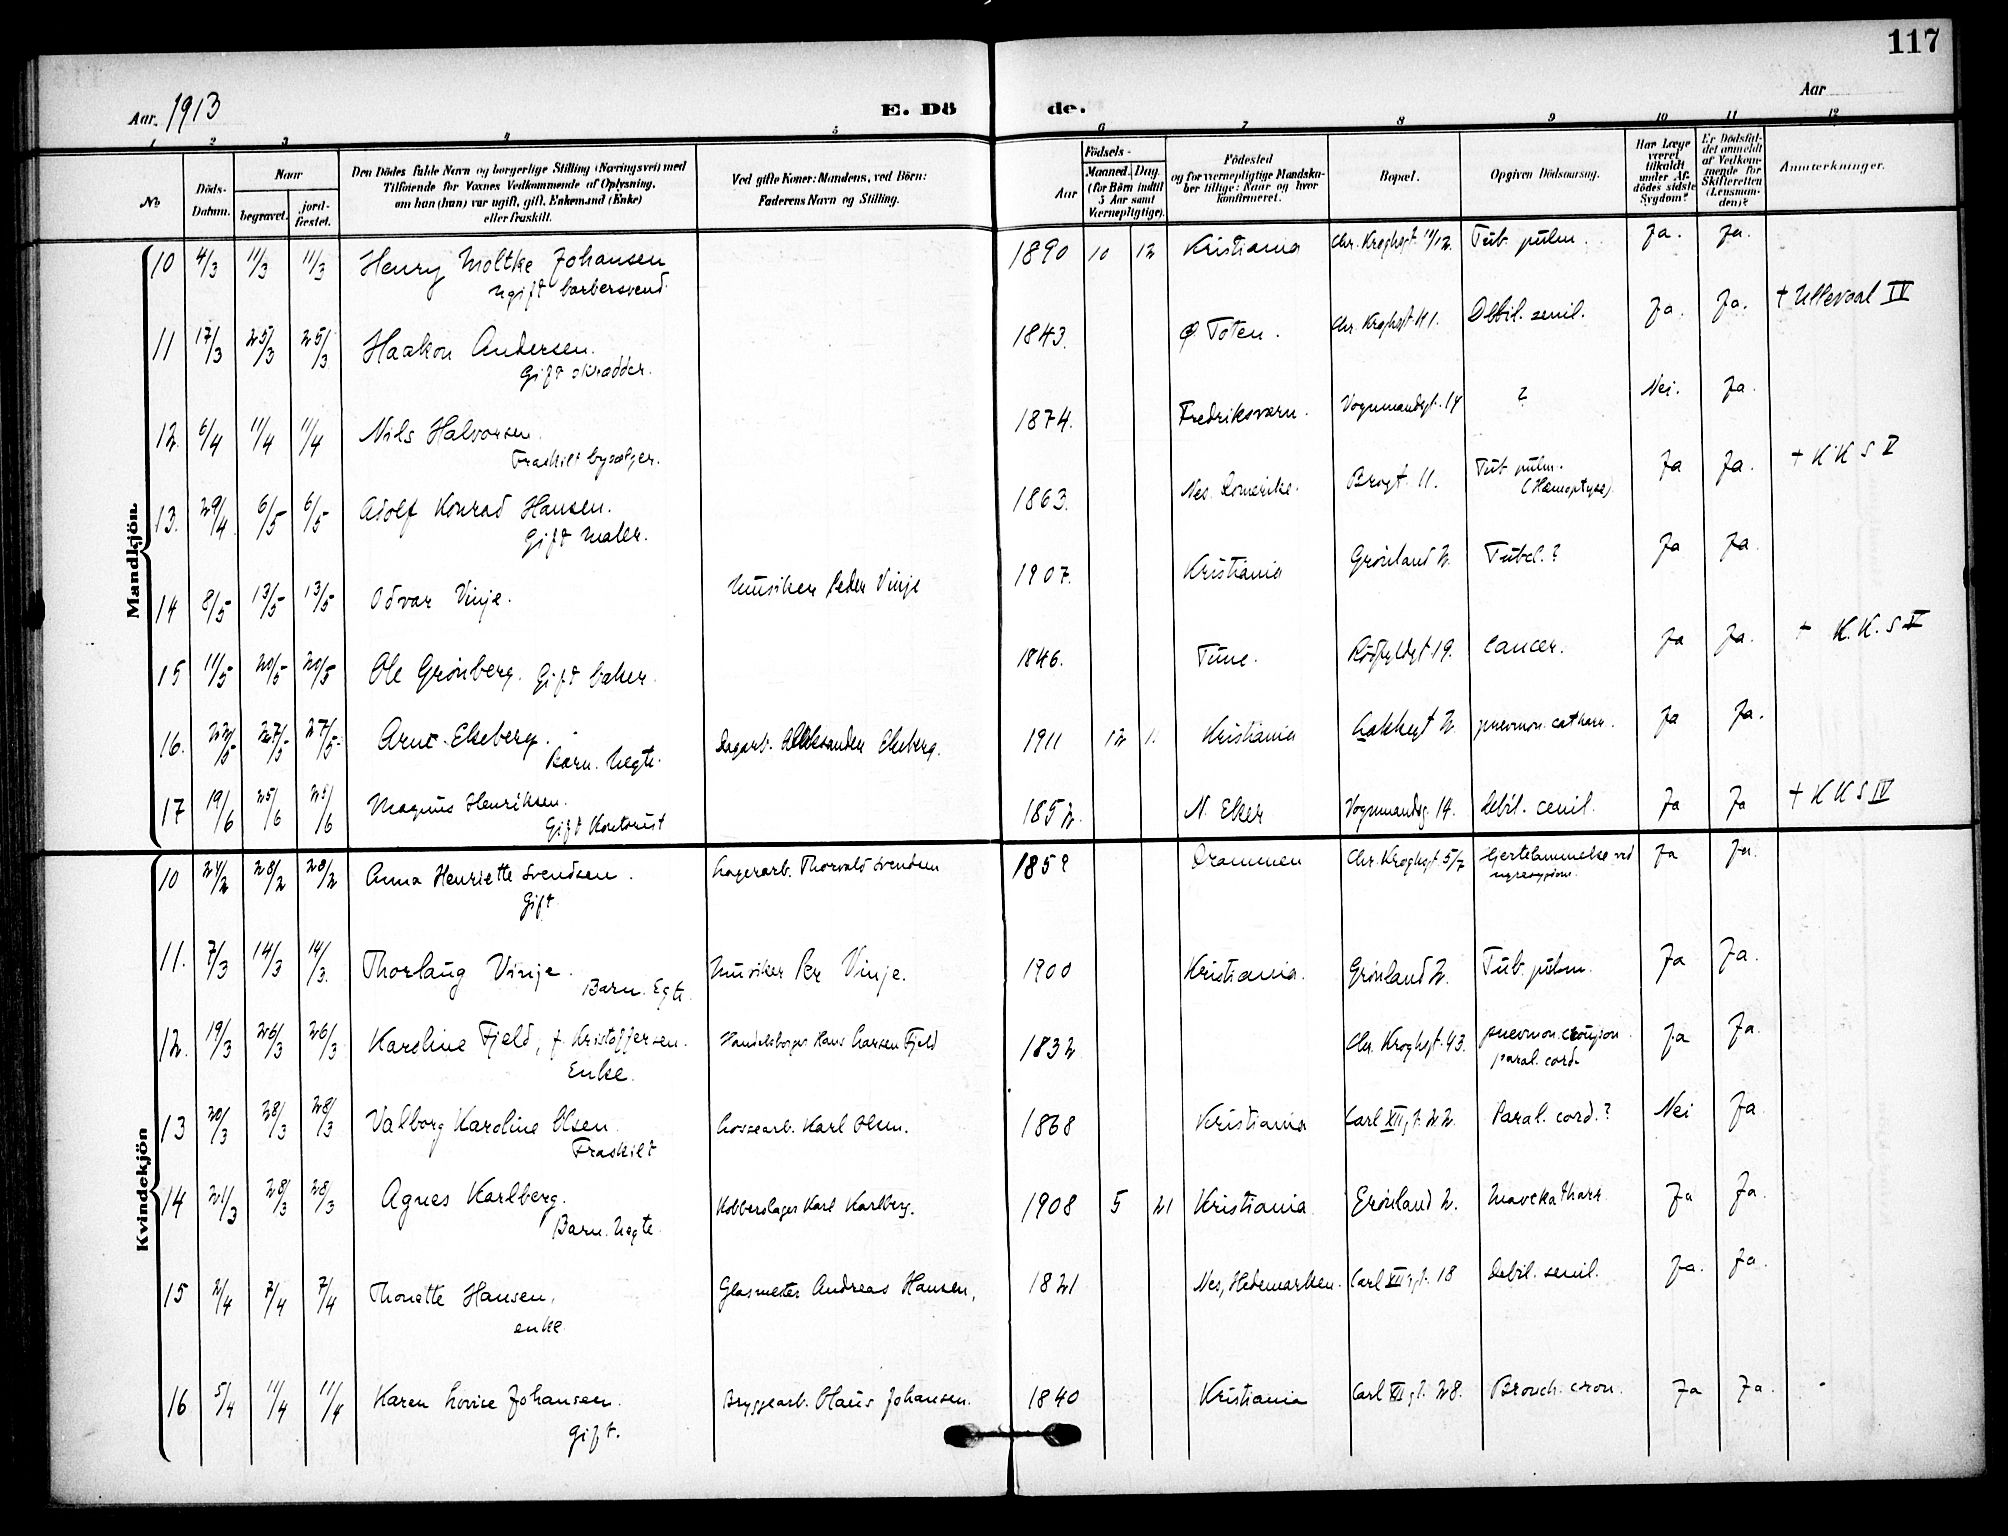 117
Aar. 1913 E. Dö de. Aar
1 2 3 4 5 6 7 8 9 10 11 12
No Döds-Datum. Naar begravet. jord-fæstet. Den Dödes fulde Navn og borgerlige Stilling (Næringsvei) med Tilföiende for Voxnes Vedkommende af Oplysning, om han (hun) var ugift, gift, Enkemand (Enke) eller fraskilt. Ved gifte Koner: Mandens, ved Börn: Faderens Navn og Stilling. Födsels- Aar Maaned. Dag. (for Börn indtil 5 Aar samt Værnepligtige). Födested og for værnepligtige Mandskaber tillige: Naar og hvor konfirmeret. Bopæl. Opgiven Dödsaarsag. Har Læge været tilkaldt under Afdödes sidste Sygdom? Er Dödsfaldet anmeldt af Vedkommende for Skifteretten (Lensmanden)? Anmærkninger.
Mandkjön.
10 4/3 11/3 11/3 Henry Moltke Johansen 1890 10 12 Kristiania Chr. Kroghgt 11/12. Tub. pulm. Ja. Ja.
Ugift barbersvend.
11 17/3 25/3 25/3 Haakon Andersen. 1843. Ø Toten. Chr. Kroghgt 41. Debil. senil. Ja. Ja. † Ullevaal IV
Gift skrædder.
12. 6/4 11/4 11/4 Nils Halvorsen. 1874. Fredriksværn. Vognmandsgt. 14 ? Nei. Ja.
Fraskilt bysælger.
13. 29/4 6/5 6/5 Adolf Konrad Hansen. 1863. Nes. Romerike. Brogt. 11. Tub. pulm. (Hæmoptyse). Ja Ja. † K K S V
Gift maler.
14 8/5 13/5 13/5 Odvar Vinje. Musiker Peder Vinje 1907. Kristiania Grønland 2. Tubel.? Ja Ja.
15 11/5 20/5 20/5 Ole Grønberg. Gift baker. 1846. Tune. Rødfyldgt 19. Cancer. Ja Ja. † K. K. S V
16. 22/5 27/5 27/5. Arne Ekeberg. Dagarb. Aleksander Ekeberg. 1911 12 1. Kristiania Lakkegt 2 pneumon. catharr. Ja Ja.
Barn. Uegte.
17 19/6 25/6 25/6 Magnus Henriksen. 1852. N. Eker Vognmandsg. 14. Debil. cenil. Ja Ja † K K S IV
Gift Kontorist
Kvindekjön
10 24/2 28/2 28/2 Anna Henriette Svendsen. Lagerarb. Thorvald Svendsen 185? Drammen Chr. Kroghgt 5/7 Hjertelammelse ved Ja Ja.
Gift
11. 7/3 14/3 14/3. Thorlaug Vinje. Musiker Per Vinje. 1900 Kristiania. Grønland 2. Tub. pulm. Ja Ja.
Barn. Egte.
12. 19/3 26/3 26/3 Karoline Fjeld, f. Kristoffersen. Handelsborger Hans Larsen Fjeld 1832 Chr. Kroghgt. 43. pneumon. croupon. paral. cord. Ja Ja.
Enke.
13 20/3 28/3 28/3 Valborg Karoline Olsen. Lossearb. Karl Olsen. 1868 Kristiania Carl XII gt. 22. Paral. cord.? Nei Ja.
Fraskilt
14 21/3 28/3 28/3 Agnes Karlberg. Kobberslager Karl Karlberg. 1908 5 21 Kristiania Grønland 2. Mavekatharr. Ja Ja.
Barn. Uegte.
15 2/4 7/4 7/4 Thonette Hansen, Glasmester Andreas Hansen, 1821 Nes, Hedemarken. Carl XII gt. 18 Debil. senil. Ja. Ja.
enke.
16 5/4 11/4 11/4 Karen Lovise Johansen. Bryggearb. Olaus Johansen. 1840 Kristiania Carl XII gt. 28. Bronch. cron. Ja Ja.
Gift.